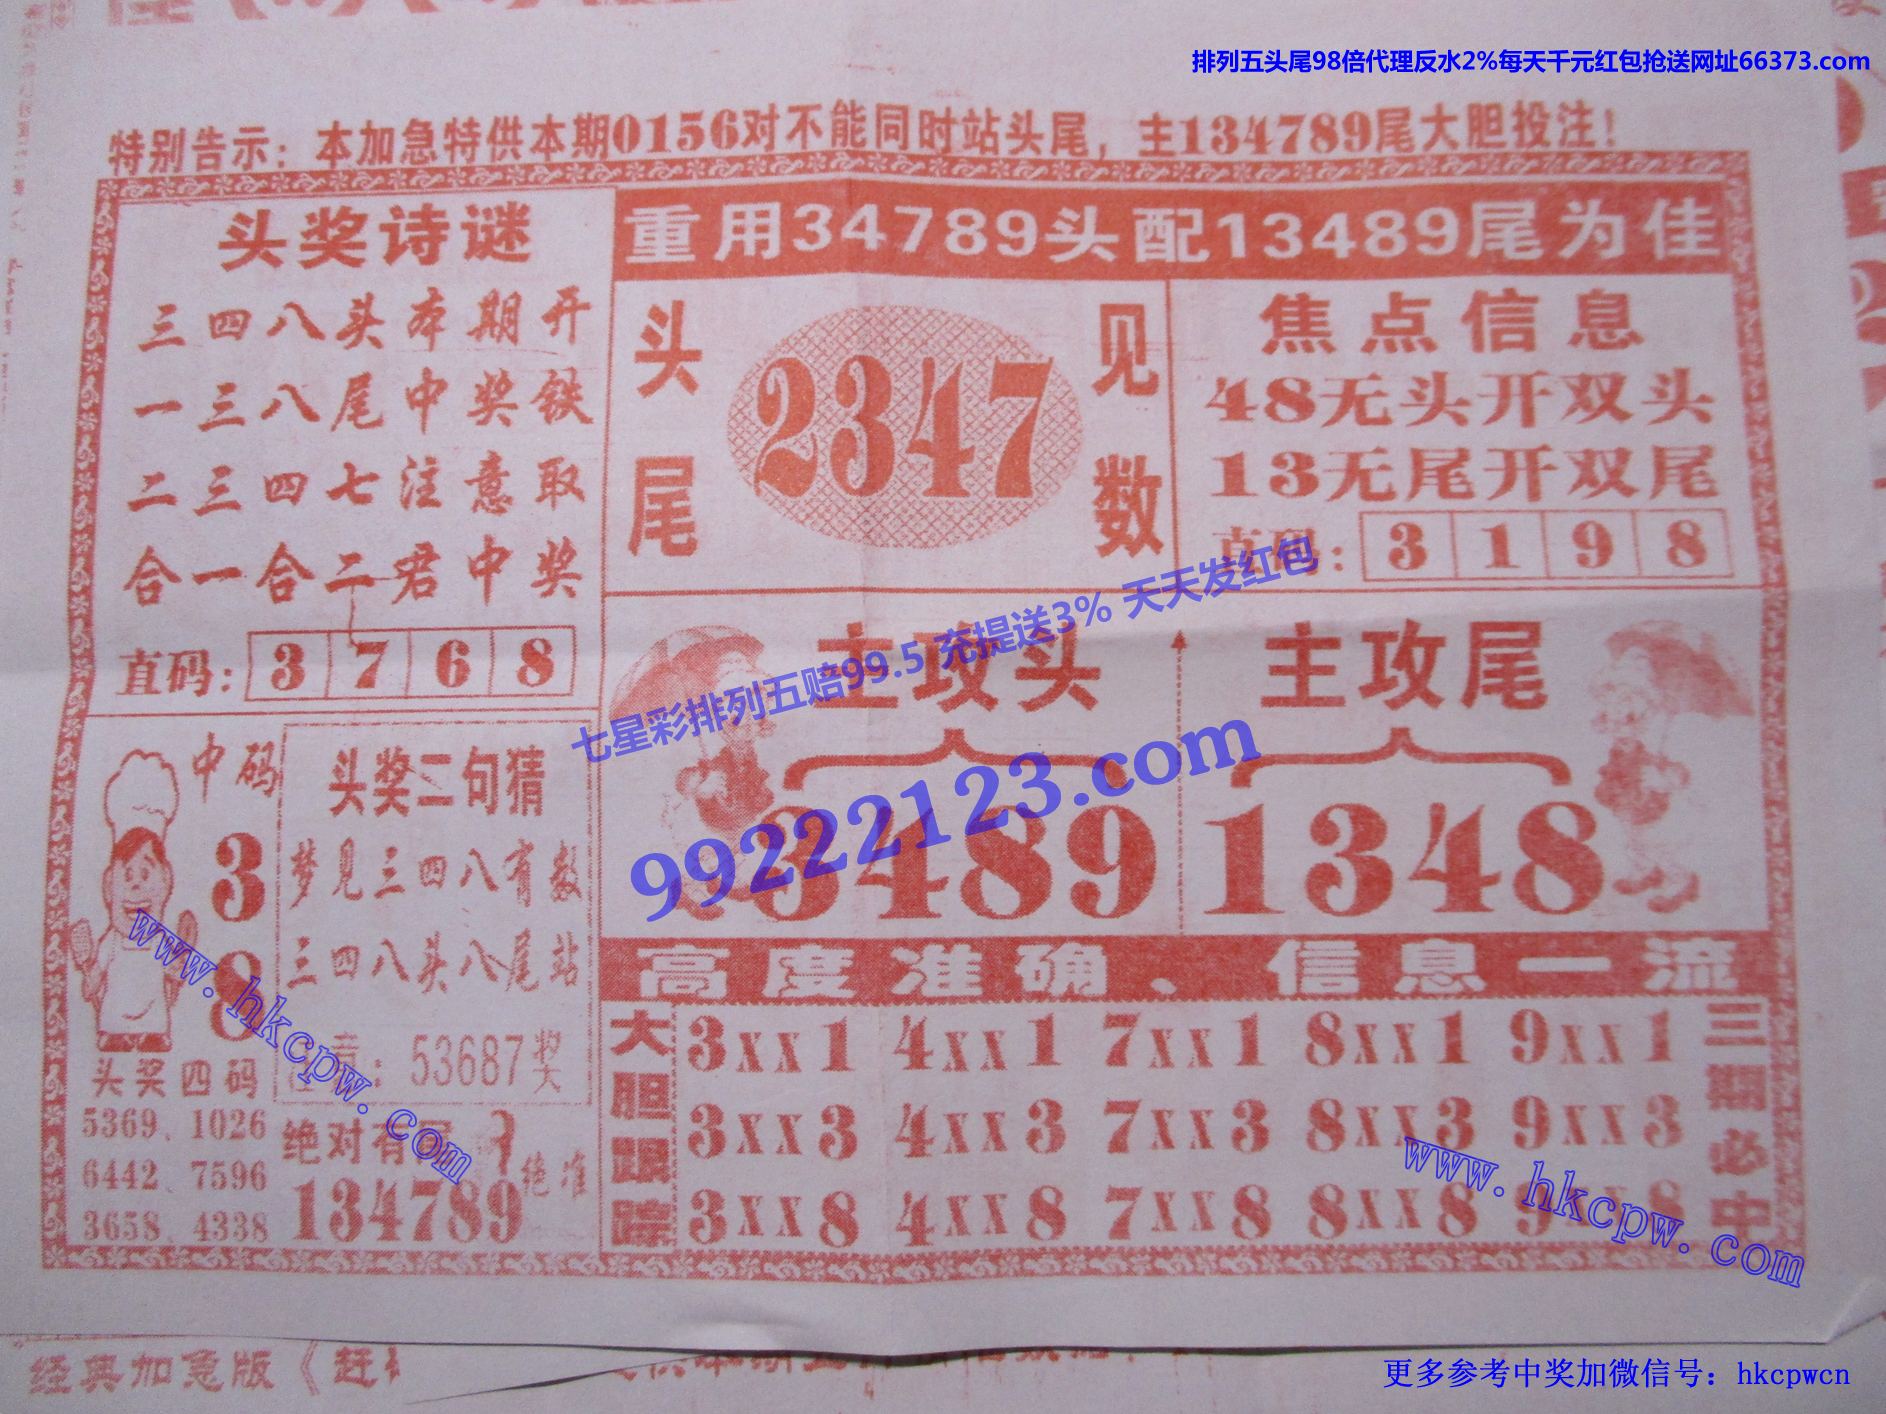 排列五头尾98倍代理反水2%每天千元红包抢送网址66373.com
特别告示：本加急特供本期0156对不能同时站头尾，主134789尾大胆投注！
头奖诗谜
三四八头本期开
一三八尾中奖铁
二三四七注意取
合一合二君中奖
直码：3768
重用34789头配13489尾为佳
头尾
2347
见数
焦点信息
48无头开双头
13无尾开双尾
直码：3198
七星彩排列五赔99.5 充提送3% 天天发红包
99222123.com
主攻头
3489
主攻尾
1348
中码
3
8
头奖四码
5369、1026
6442、7596
3658、4338
头奖二句猜
梦见三四八有数
三四八头八尾站
53687奖大
绝对有尾
134789
绝准
高度准确、信息一流
大胆跟踪
3xx1 4xx1 7xx1 8xx1 9xx1
3xx3 4xx3 7xx3 8xx3 9xx3
3xx8 4xx8 7xx8 8xx8 9xx8
三期必中
www.hkcpw.com
www.hkcpw.com
经典加急版《赶
更多参考中奖加微信号：hkcpwcn